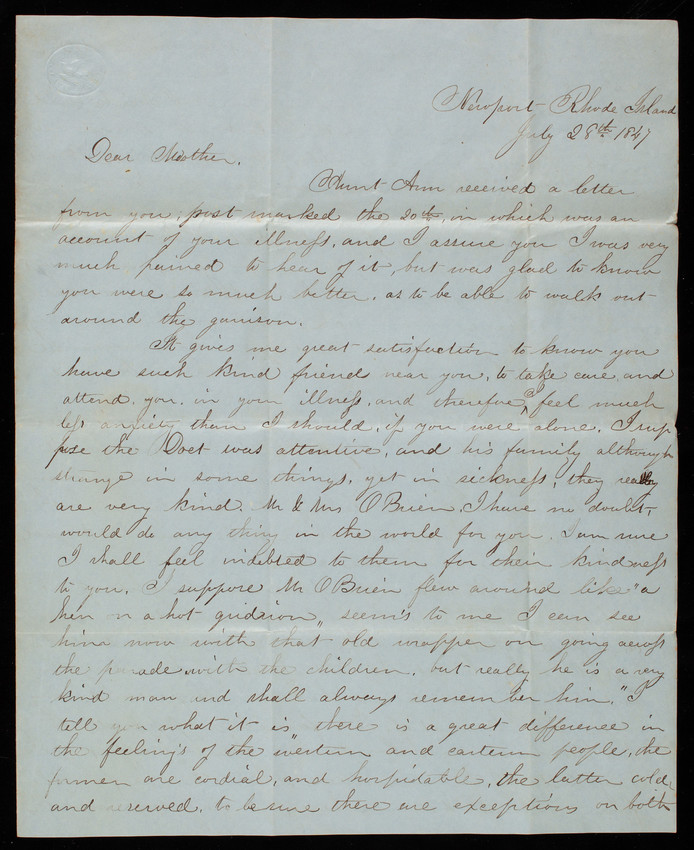 Newport Rhode Island
July 28th 1847
Dear Mother.
Aunt Ann received a letter
from you, post marked the 20th, in which was an
account of your illness, and I assure you I was very
much pained to hear of it, but was glad to know
you were so much better, as to be able to walk out
around the garrison.
It gives me great satisfaction to know you
have such kind friends near you, to take care, and
attend, you, in your illness, and therefore, I feel much
less anxiety than I should, if you were alone. I sup
pose the Doct was attentive, and his family although
strange in some things, yet in sickness, they really
are very kind. Mr & Mrs O'Brien, I have no doubt,
would do any thing in the world for you. I am sure
I shall feel indebted to them for their kindness
to you. I suppose Mr O'Brien flew around like "a
hen on a hot gridiron" seem's to me I can see
him now with that old wrapper on going across
the parade with the children, but really he is a very
kind man and shall always remember him. "I
tell you what it is" there is a great difference in
the feeling's of the western and eastern people, the
former are cordial, and hospitable, the latter cold,
and reserved, to be sure there are exceptions on both